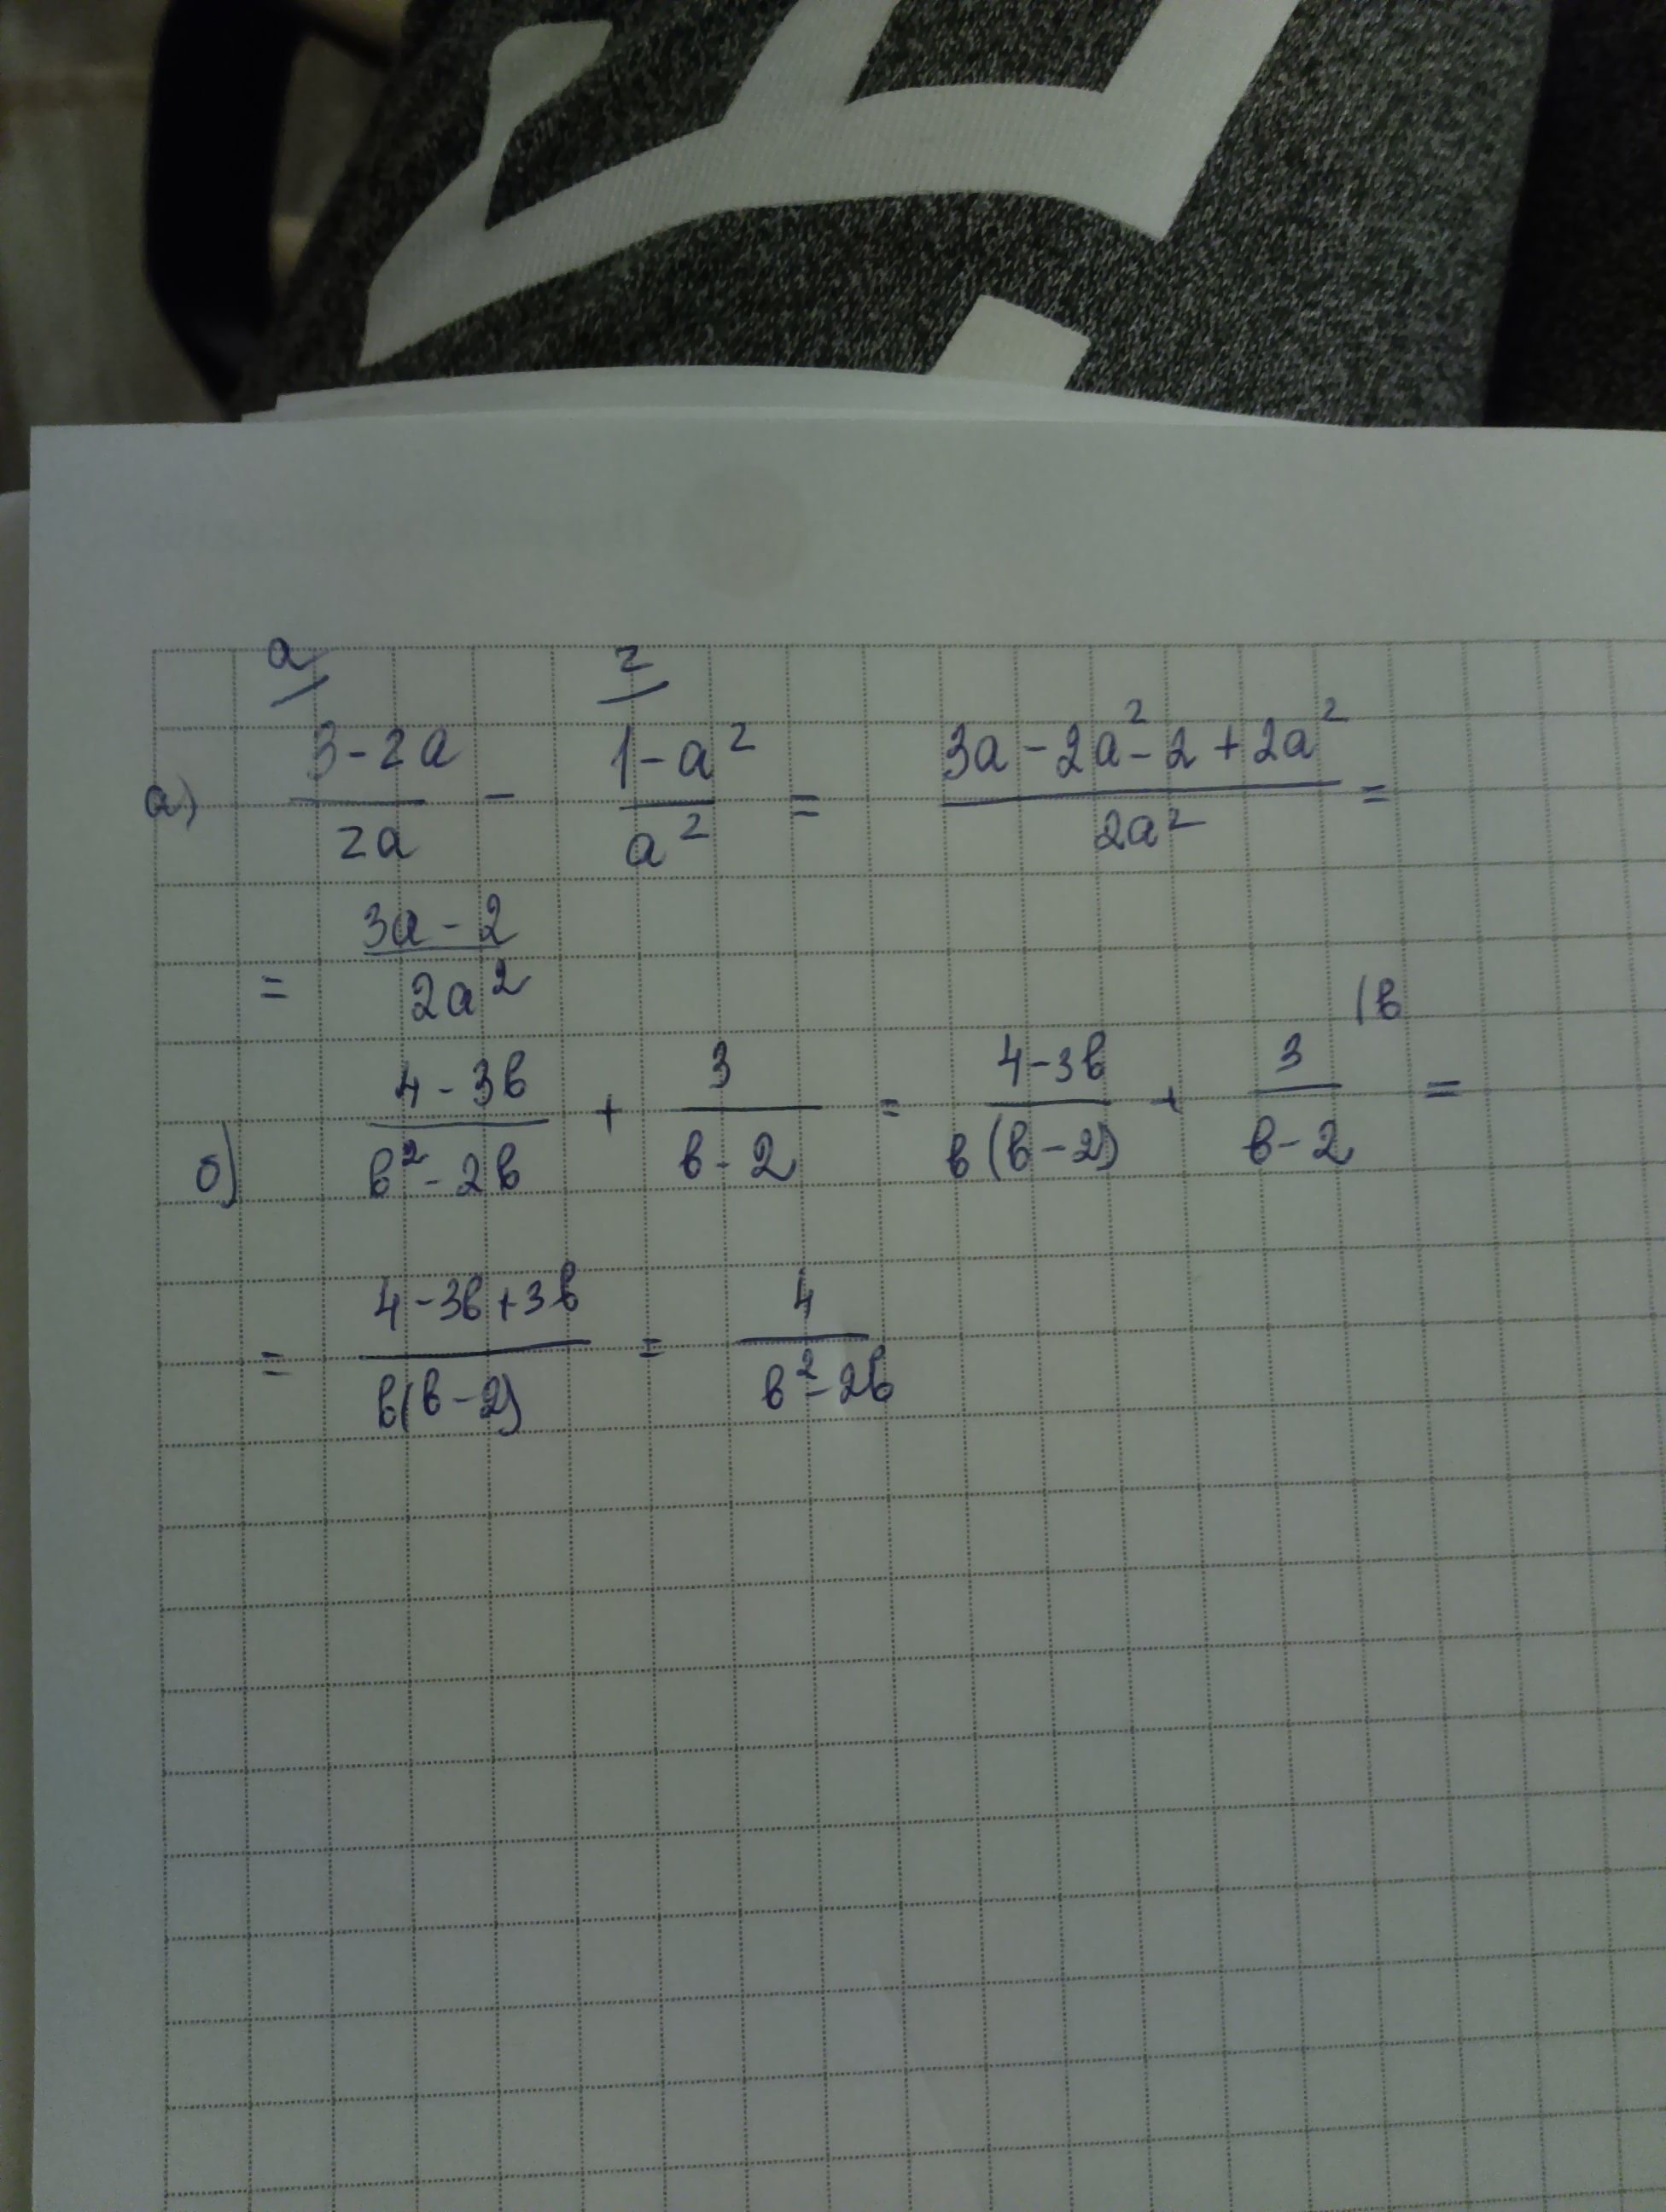 a/ 2/
а) (3-2a)/(2a) - (1-a²)/(a²) = (3a-2a²-2+2a²)/(2a²) =
= (3a-2)/(2a²)
б) (4-3в)/(в²-2в) + 3/(в-2) = (4-3в)/(в(в-2)) + 3/(в-2) (в =
= (4-3в+3в)/(в(в-2)) = 4/(в²-2в)